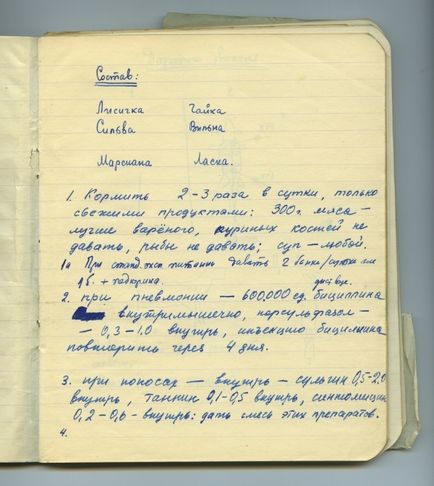 Состав:
Лисичка Чайка
Сильва Вильна
Марсиана Ласка.
1. Кормить 2-3 раза в сутки, только
свежими продуктами: 300 г. мяса –
лучше варёного, куриных костей не
давать, рыбы не давать; суп – любой.
1а При станд. питании давать 2 банки/сутки или
1б. + подкормка.
2. при пневмонии – 600,000 ед. бициллина
внутримышечно, норсульфазол –
– 0,3-1.0 внутрь, инъекцию бициллина
повторить через 4 дня.
3. при поносах – внутрь – сульгин 0,5-2,0
внутрь, таннин 0,1-0,5 внутрь, синтомицин
0,2-0,6 – внутрь: дать смесь этих препаратов.
4.